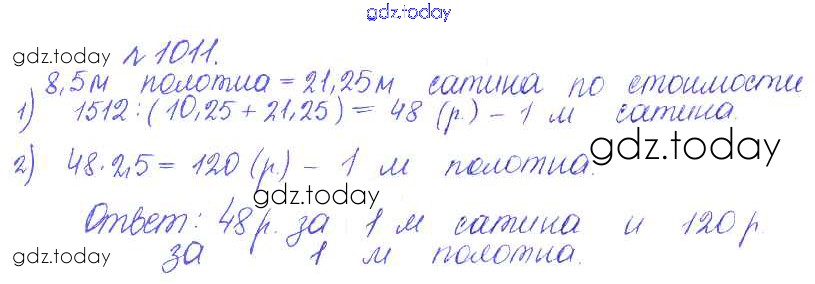 gdz.today
gdz.today № 1011.
8,5м полотна = 21,25м сатина по стоимости
1) 1512:(10,25+21,25) = 48 (р.) – 1 м сатина.
2) 48·2,5 = 120 (р.) – 1 м полотна.
gdz.today
gdz.today
Ответ: 48р. за 1 м сатина и 120р.
gdz.today за 1 м полотна. gdz.today